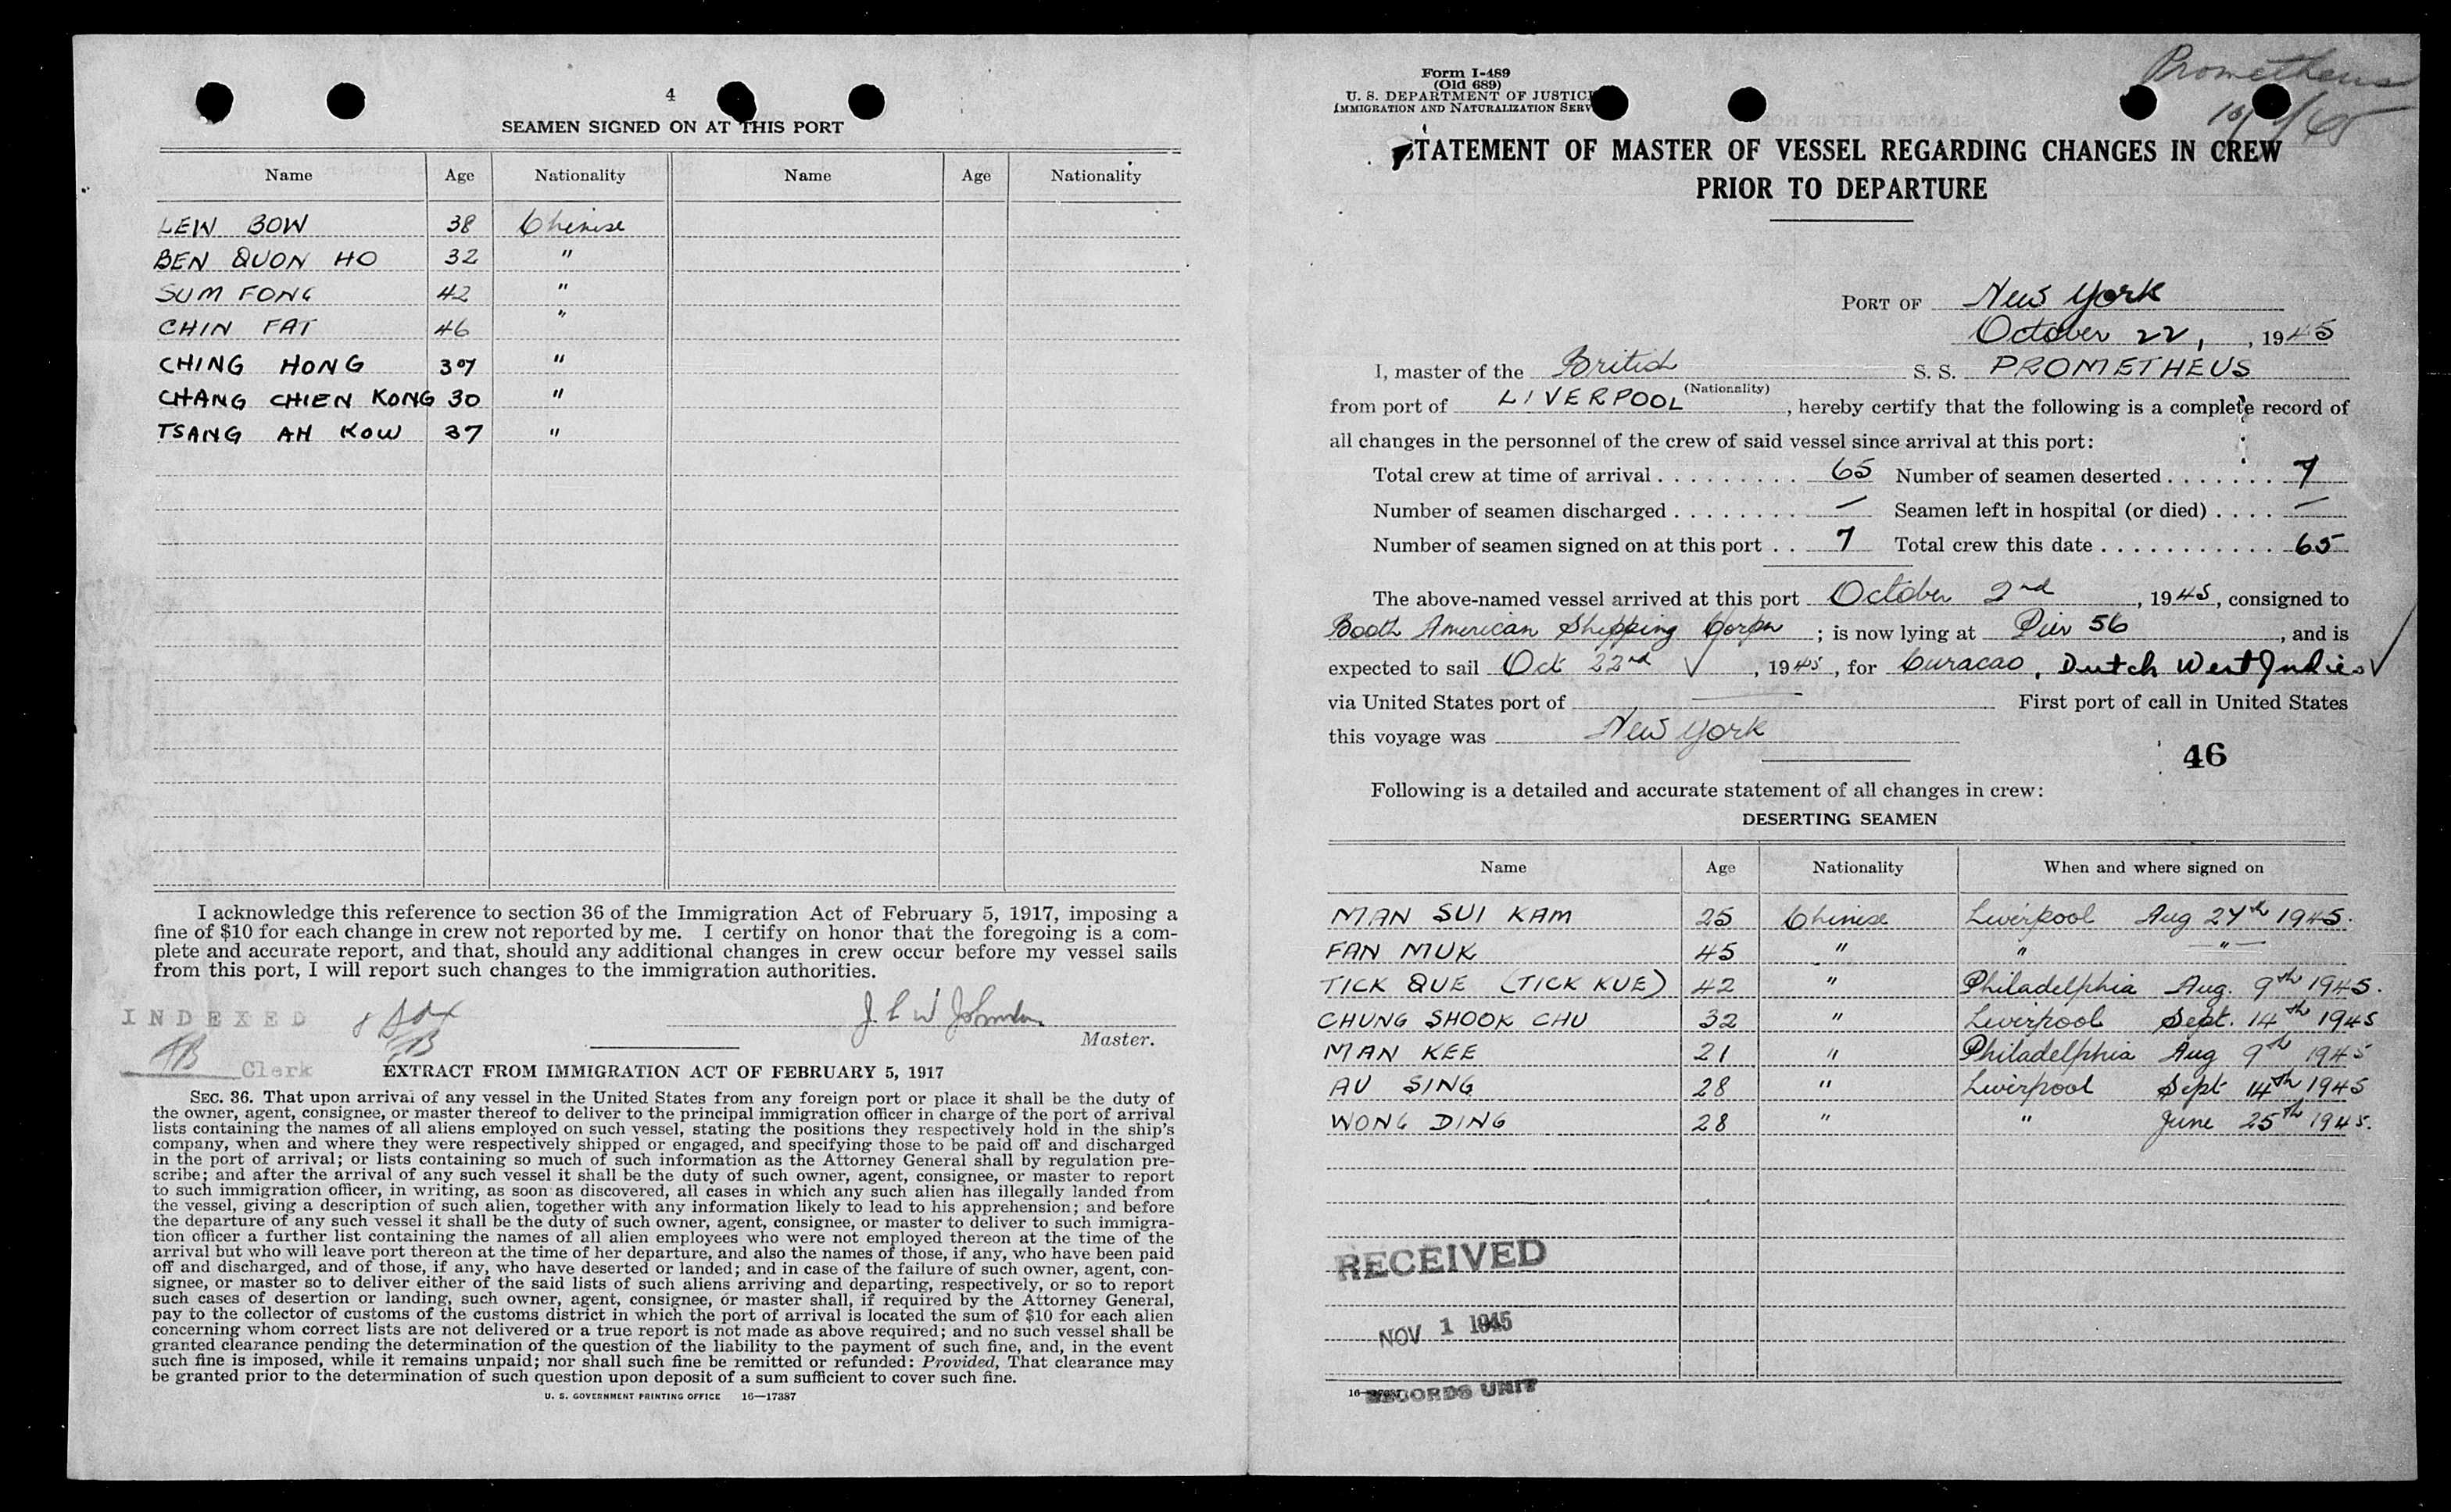 4
SEAMEN SIGNED ON AT THIS PORT
Name Age Nationality Name Age Nationality
LEW BOW 38 Chinese
BEN QUON HO 32 "
SUM FONG 42 "
CHIN FAT 46 "
CHING HONG 37 "
CHANG CHIEN KONG 30 "
TSANG AH KOW 37 "
I acknowledge this reference to section 36 of the Immigration Act of February 5, 1917, imposing a
fine of $10 for each change in crew not reported by me. I certify on honor that the foregoing is a com-
plete and accurate report, and that, should any additional changes in crew occur before my vessel sails
from this port, I will report such changes to the immigration authorities.
INDEXED
Clerk
Master.
EXTRACT FROM IMMIGRATION ACT OF FEBRUARY 5, 1917
SEC. 36. That upon arrival of any vessel in the United States from any foreign port or place it shall be the duty of
the owner, agent, consignee, or master thereof to deliver to the principal immigration officer in charge of the port of arrival
lists containing the names of all aliens employed on such vessel, stating the positions they respectively hold in the ship's
company, when and where they were respectively shipped or engaged, and specifying those to be paid off and discharged
in the port of arrival; or lists containing so much of such information as the Attorney General shall by regulation pre-
scribe; and after the arrival of any such vessel it shall be the duty of such owner, agent, consignee, or master to report
to such immigration officer, in writing, as soon as discovered, all cases in which any such alien has illegally landed from
the vessel, giving a description of such alien, together with any information likely to lead to his apprehension; and before
the departure of any such vessel it shall be the duty of such owner, agent, consignee, or master to deliver to such immigra-
tion officer a further list containing the names of all alien employees who were not employed thereon at the time of the
arrival but who will leave port thereon at the time of her departure, and also the names of those, if any, who have been paid
off and discharged, and of those, if any, who have deserted or landed; and in case of the failure of such owner, agent, con-
signee, or master so to deliver either of the said lists of such aliens arriving and departing, respectively, or so to report
such cases of desertion or landing, such owner, agent, consignee, or master shall, if required by the Attorney General,
pay to the collector of customs of the customs district in which the port of arrival is located the sum of $10 for each alien
concerning whom correct lists are not delivered or a true report is not made as above required; and no such vessel shall be
granted clearance pending the determination of the question of the liability to the payment of such fine, and, in the event
such fine is imposed, while it remains unpaid; nor shall such fine be remitted or refunded: Provided, That clearance may
be granted prior to the determination of such question upon deposit of a sum sufficient to cover such fine.
U. S. GOVERNMENT PRINTING OFFICE 16—17387
Prometheus
Form I-489
(Old 689)
U. S. DEPARTMENT OF JUSTICE
IMMIGRATION AND NATURALIZATION SERV
STATEMENT OF MASTER OF VESSEL REGARDING CHANGES IN CREW
PRIOR TO DEPARTURE
PORT OF New York
October 22, , 1945
I, master of the British S. S. PROMETHEUS
(Nationality)
from port of LIVERPOOL , hereby certify that the following is a complete record of
all changes in the personnel of the crew of said vessel since arrival at this port:
Total crew at time of arrival . . . . . . . . . 65 Number of seamen deserted . . . . . . . 7
Number of seamen discharged . . . . . . . . — Seamen left in hospital (or died) . . . . —
Number of seamen signed on at this port . . 7 Total crew this date . . . . . . . . . . . 65
The above-named vessel arrived at this port October 2nd , 1945, consigned to
Booth American Shipping Corpn ; is now lying at Pier 56 , and is
expected to sail Oct 22nd ✓ , 1945, for Curacao, Dutch West Indies ✓
via United States port of — First port of call in United States
this voyage was New York
46
Following is a detailed and accurate statement of all changes in crew:
DESERTING SEAMEN
Name Age Nationality When and where signed on
MAN SUI KAM 25 Chinese Liverpool Aug 27th 1945.
FAN MUK 45 " " —"—
TICK QUE (TICK KUE) 42 " Philadelphia Aug. 9th 1945.
CHUNG SHOOK CHU 32 " Liverpool Sept. 14th 1945
MAN KEE 21 " Philadelphia Aug 9th 1945
AU SING 28 " Liverpool Sept 14th 1945
WONG DING 28 " " June 25th 1945.
RECEIVED
NOV 1 1945
RECORDS UNIT